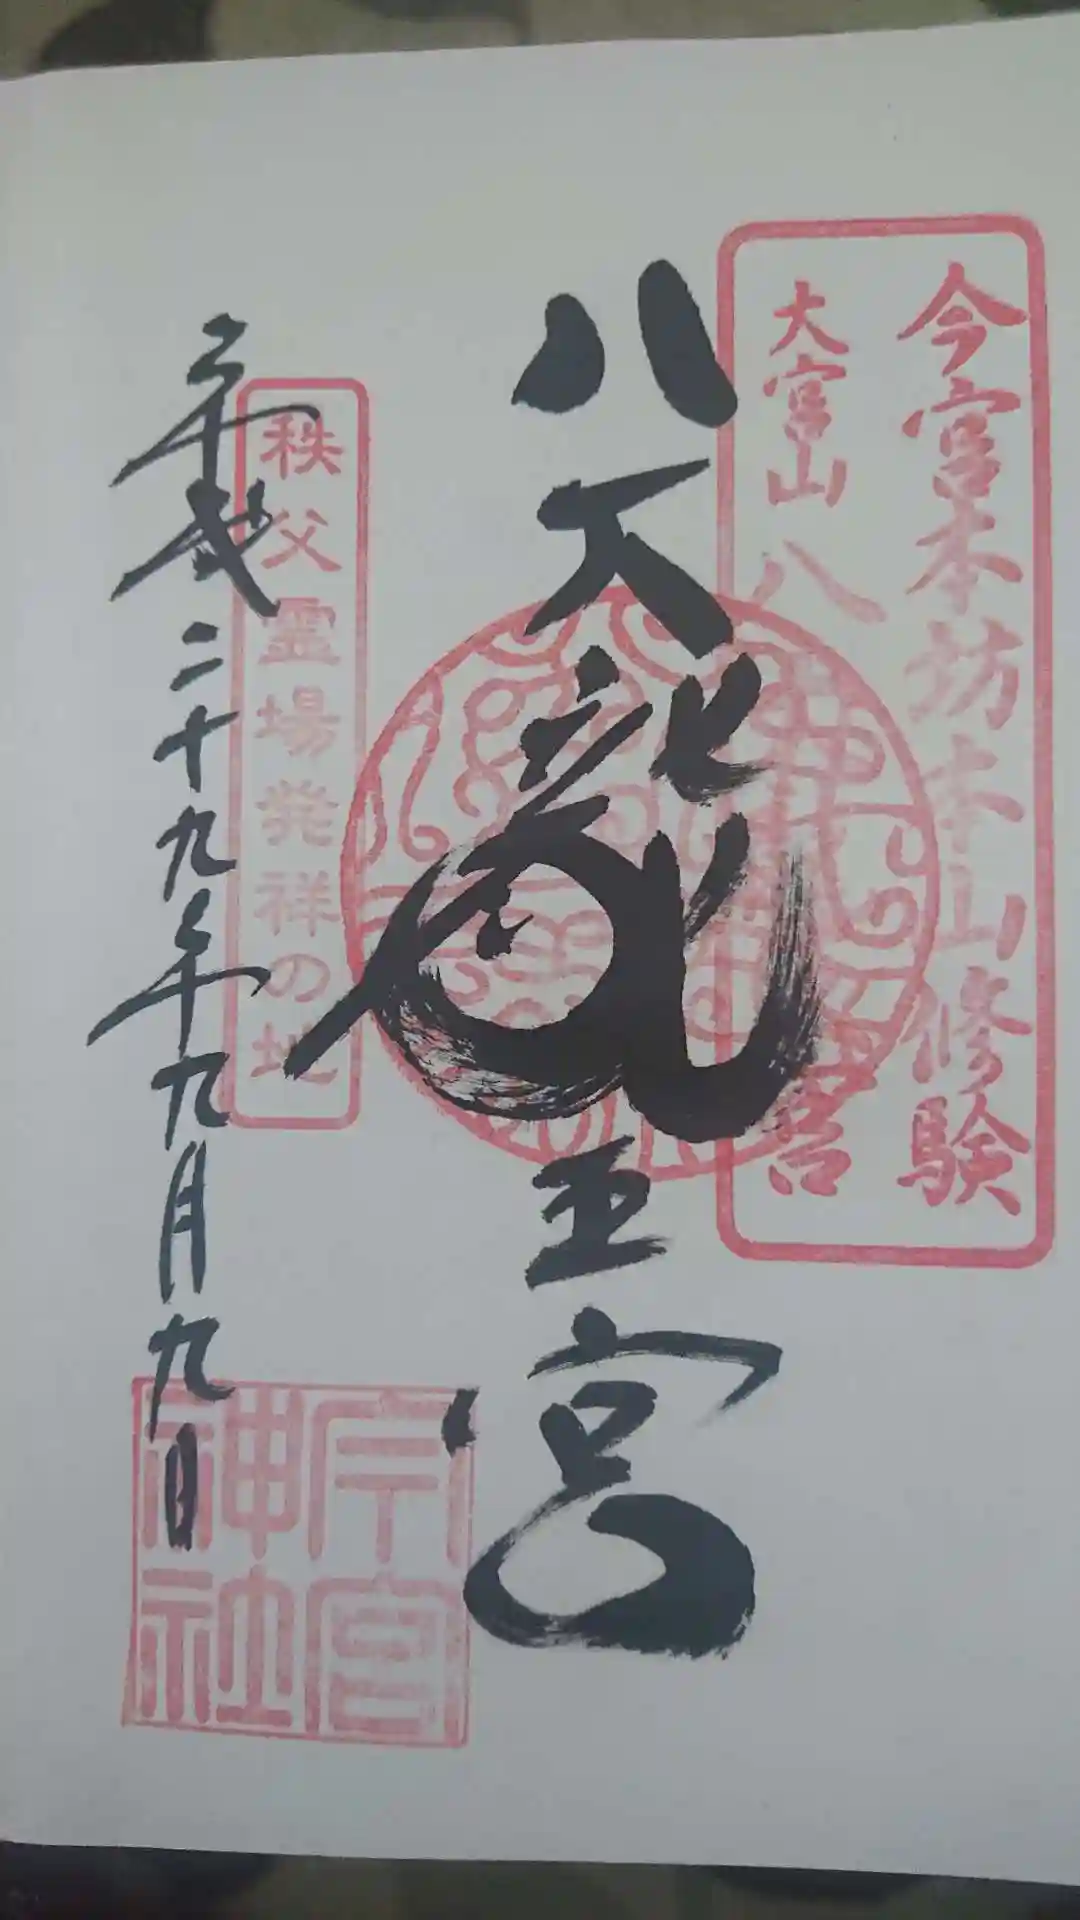 今宮本坊本山修験
大宮山
八
宮
八大龍王宮
秩父霊場発祥の地
平成二十九年九月九日
今宮
神社